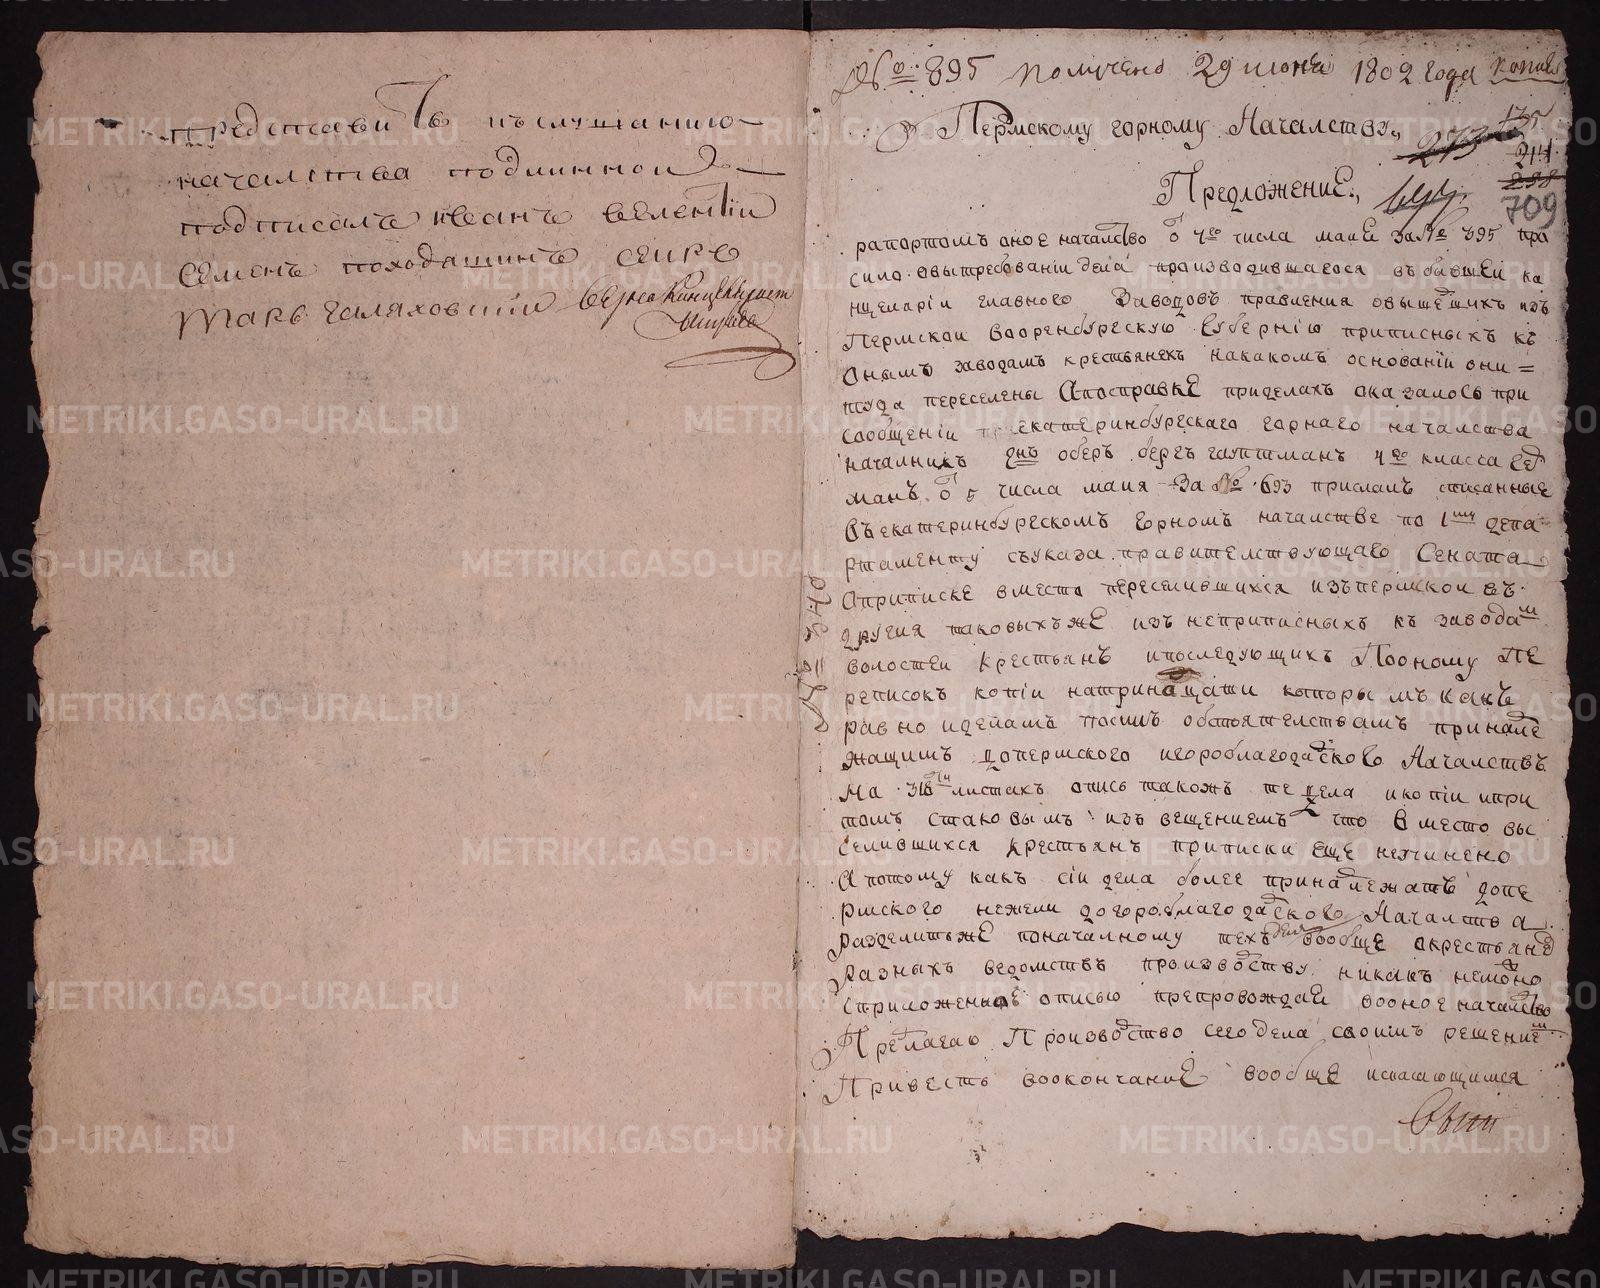 представить къ слушанию
начальства подлинной
подписалъ иванъ велентiи
семенъ походяшинъ секре
тарь галяховскiи верно Канцеляристъ
№ 895 получено 29 июня 1802 года копия
Пермскому горному Началству
135
273
214
Предложение.
288
709
рапортомъ оное началство о 4го числа маие за № 395 про
сило овытребованiи дела производившагося въ бывшеи ка
нцелярiи главного Заводовъ правления овышедшихъ изъ
Пермскои вооренбурскую губернiю приписныхъ къ
Онымъ заводамъ крестьянехъ накакомъ основанiи они =
туда переселены Апосправке приделахъ оказалось при
сообщенiи екатеринбурскаго горнаго началства
началникъ гнъ оберъ бергъ гауптманъ 4го класса Гер
манъ о 5 числа маия За № 693 прислалъ списанные
Въекатеринбурскомъ горномъ началстве по 1му депа
ртаменту съуказа правителствующаго Сената
Оприписке вместо переселившихся изъпермскои въ
другия таковыхъже изъ неприписныхъ къ завода м
волостеи крестьянъ ипоследующихъ Пооному пе
реписокъ копiи натринацати которымъ какъ
равно иделамъ посимъ обстоятелствамъ принадле
жащимъ допермского игороблагодатского Началствъ
На 318ти листахъ опись такожъ те дела икопiи ипри
томъ стаковымъ изъвещениемъ что вместо вы
селившихся крестьянъ приписки еще неучинено
А потому какъ сiи дела более принадлежатъ допе
рмского нежели догороблагодатского Началства
разделитьже поначалному техъ дела вообще окрестьяне
разныхъ ведомствъ производству никакъ неможно
Сприложенное описью препровождаи вооное началство
Предлагаю Производство сегодела своимъ решение м
Привесть воокончание вообще испасающимся
Овыи
№ 340